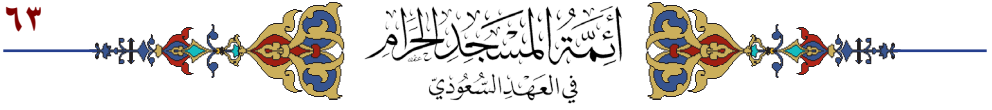 ٦٣
أَئِمَّةُ المَسْجِدِ الحَرَامِ
في العَهْدِ السُّعُودِيّ